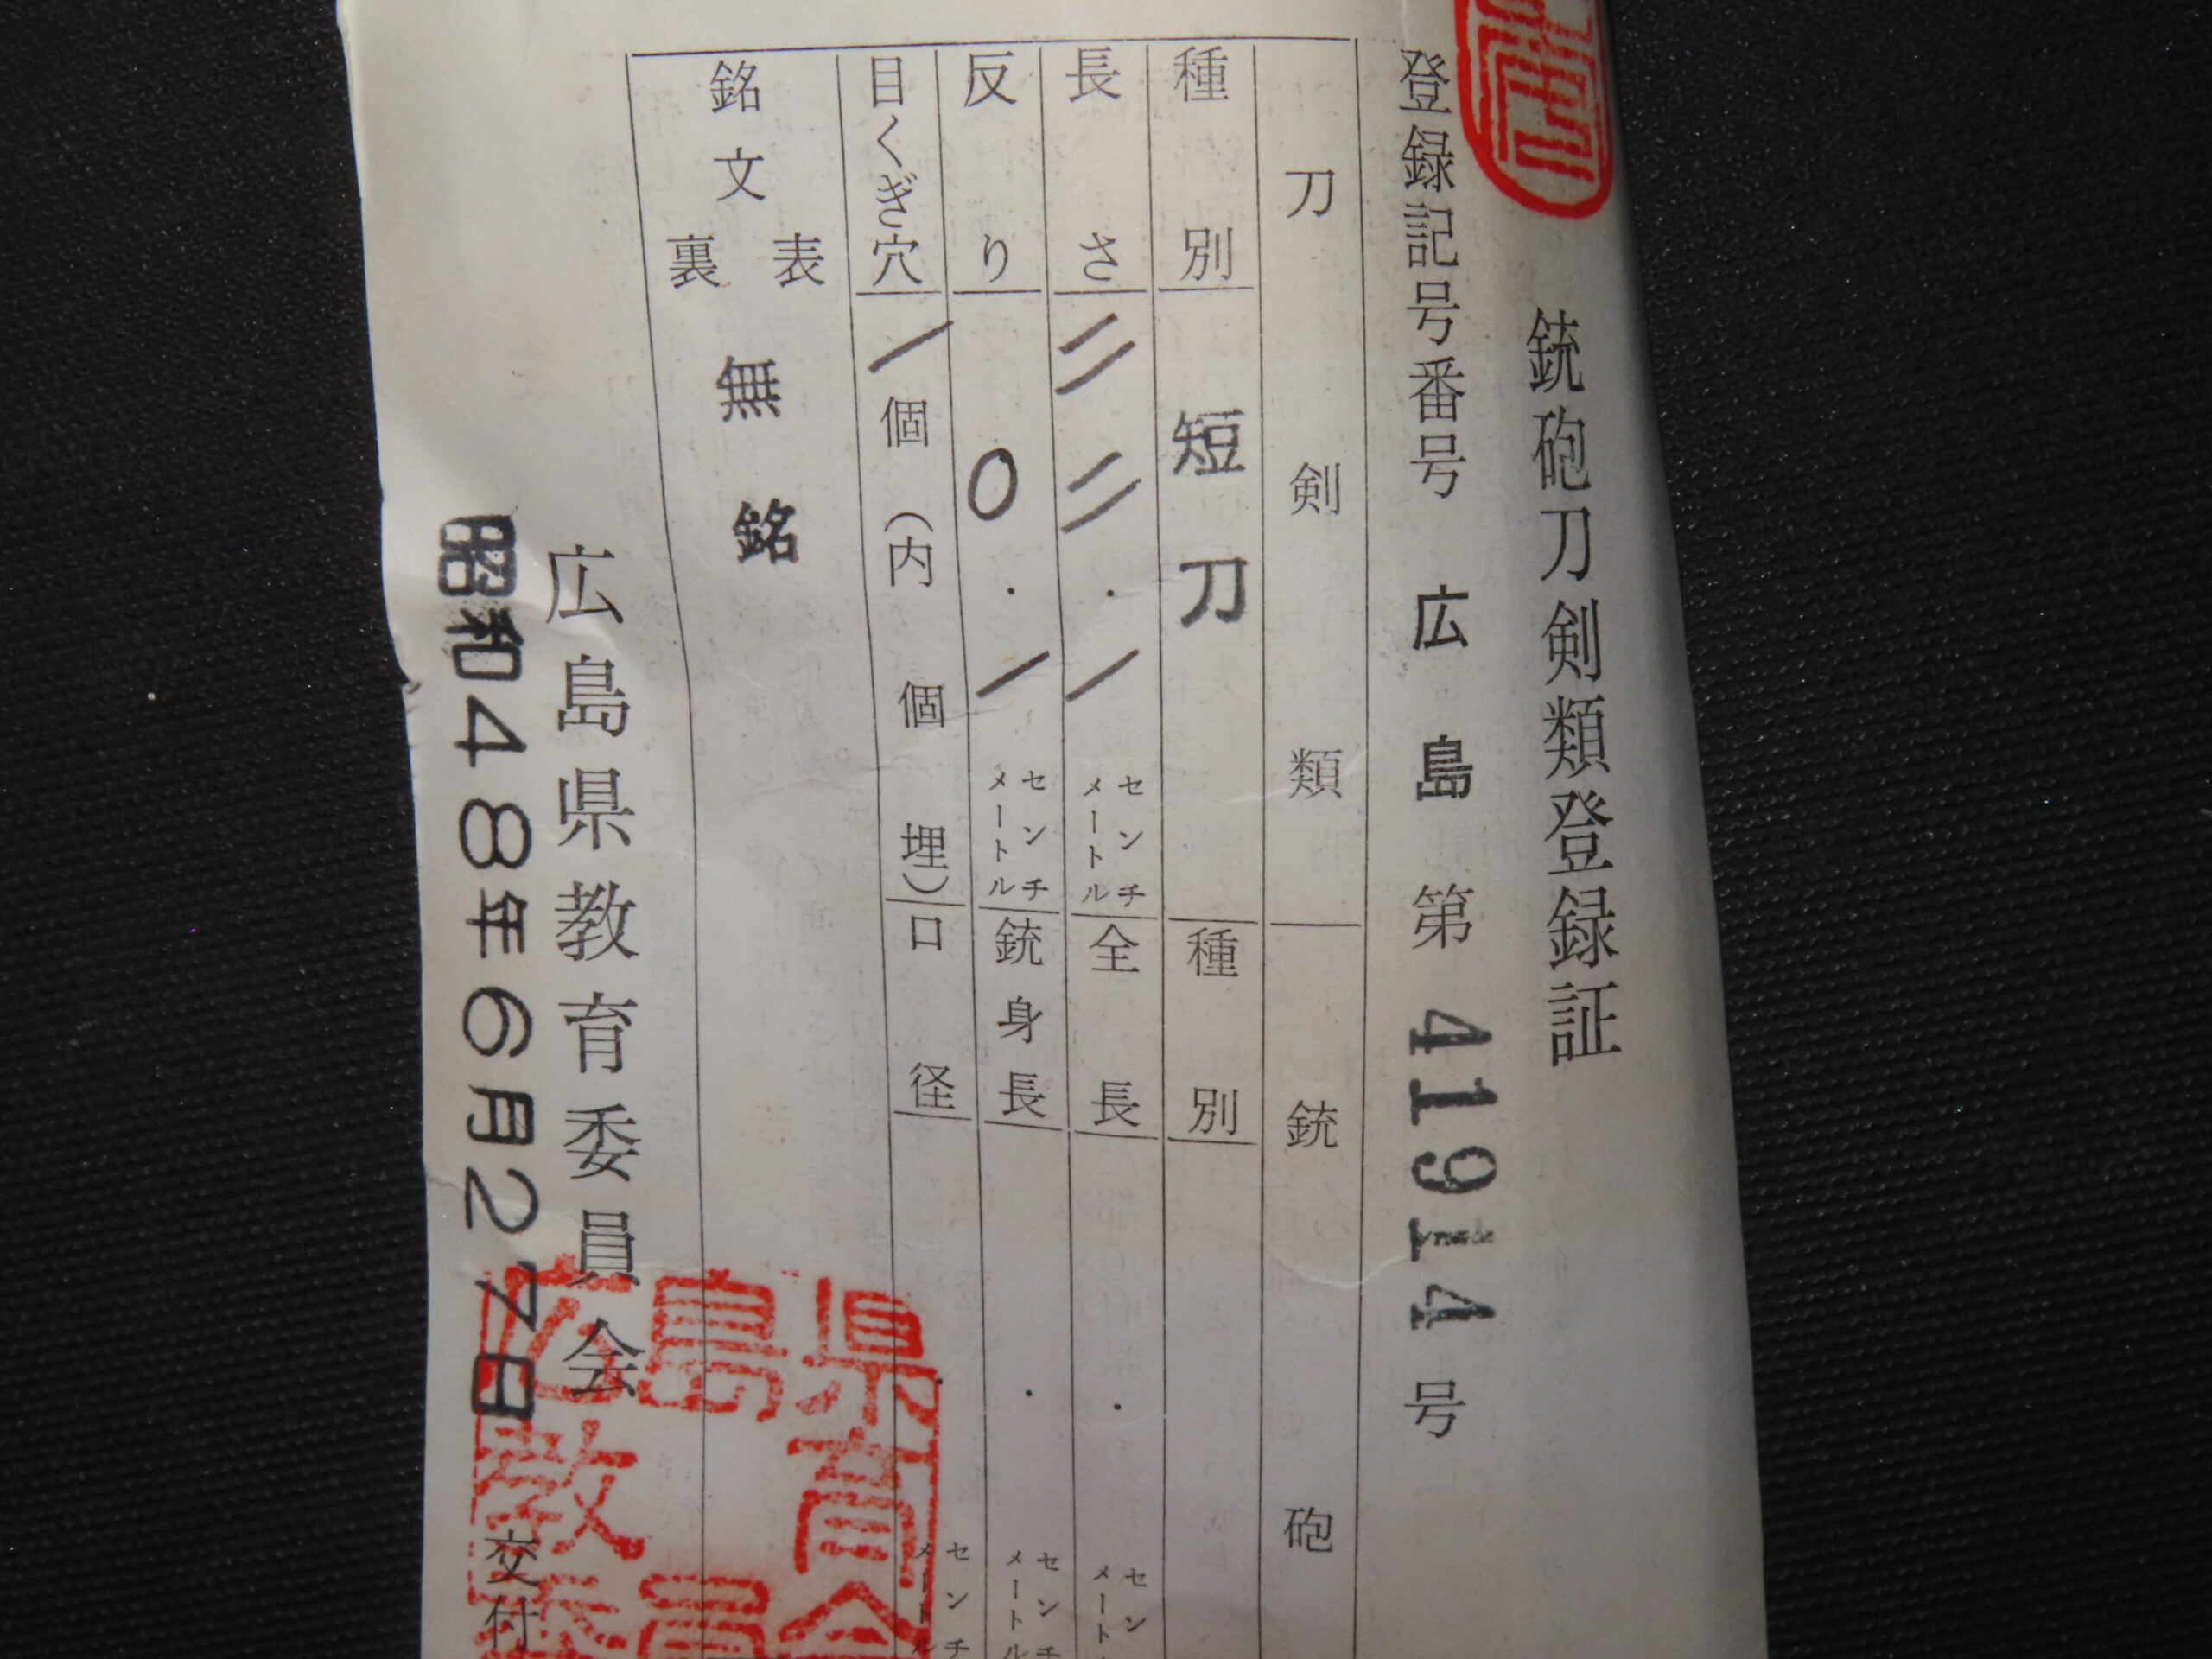 銃砲刀剣類登録証
登録記号番号 広島 第 41914 号
刀剣類
銃砲
種別 短刀
種別
長さ 二二.一 センチメートル
全長 . センチメートル
反り 0.一 センチメートル
銃身長 . センチメートル
目くぎ穴 一個(内 個埋)
口径 . センチメートル
銘文 表 裏 無銘
広島県教育委員会
昭和48年6月27日 交付
広島県教育